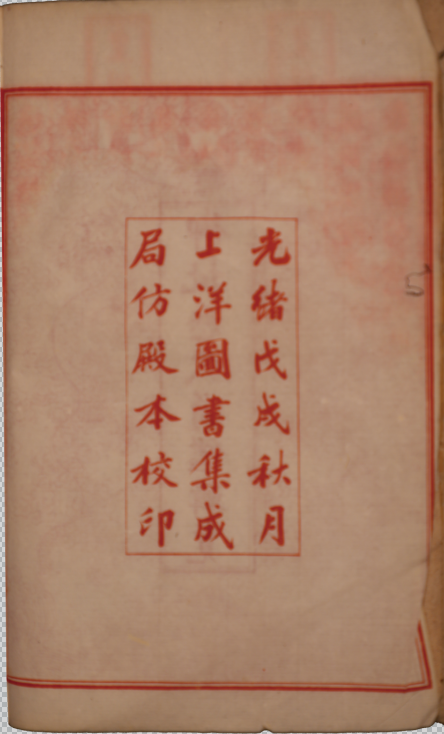 光緒戊戌秋月
上洋圖書集成
局仿殿本校印